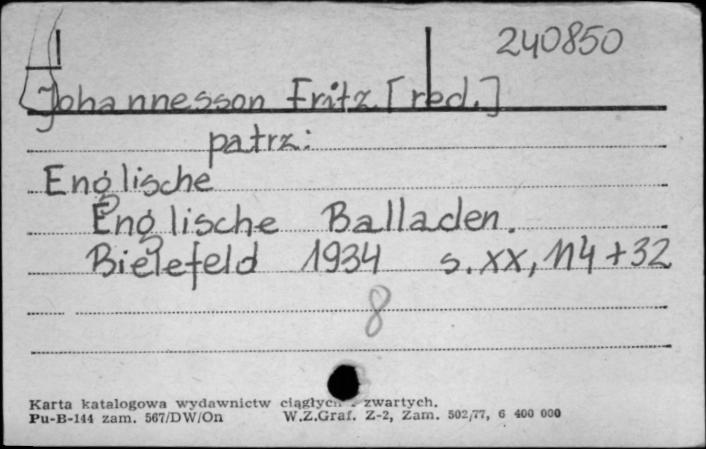 240850
Johannesson Fritz [red.]
patrz:
Englische
Englische Balladen.
Bielefeld 1934 s. XX, 114 + 32
8
Karta katalogowa wydawnictw ciągłych zwartych.
Pu-B-144 zam. 567/DW/On W.Z.Graf. Z-2, Zam. 502/77, 6 400 000